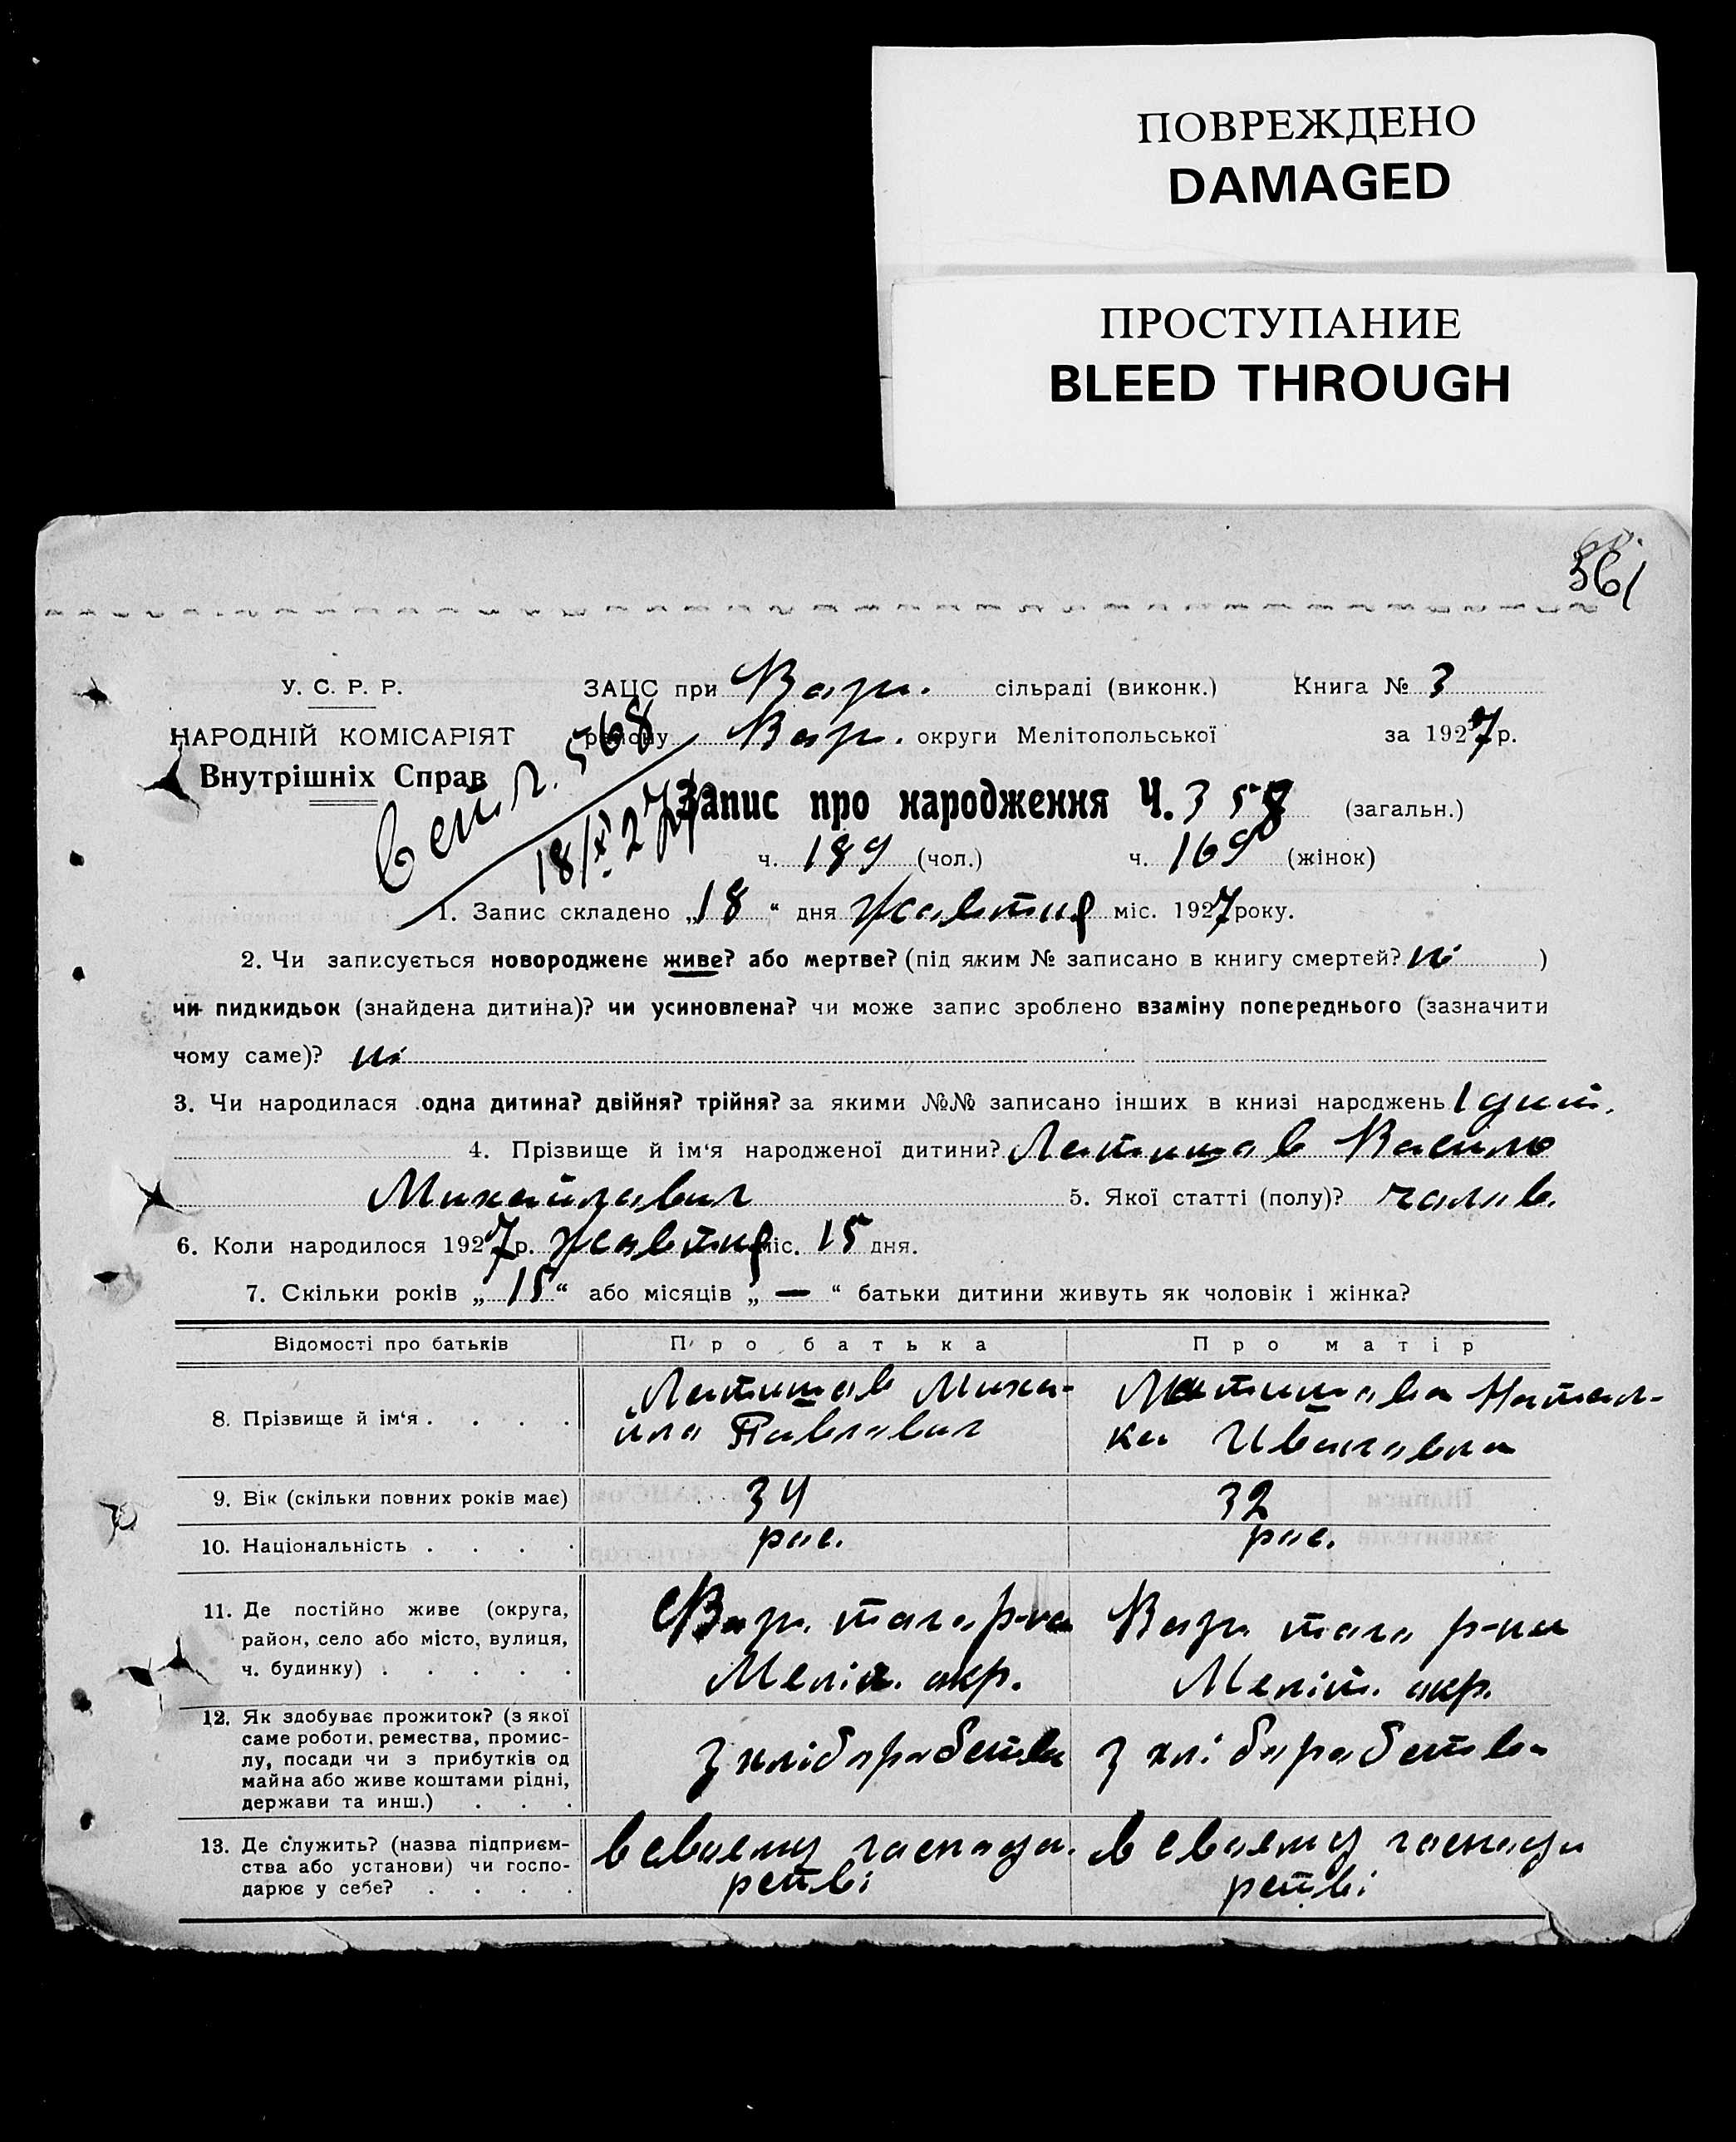 ПОВРЕЖДЕНО
DAMAGED
ПРОСТУПАНИЕ
BLEED THROUGH
561
У. С. Р. Р.
НАРОДНІЙ КОМІСАРІЯТ
Внутрішніх Справ
ЗАЦС при сільраді (виконк.)
району округи Мелітопольської
Книга № 3
за 1927 р.
568
18/X 27
Запис про народження Ч. 358 (загальн.)
ч. 189 (чол.) ч. 169 (жінок)
1. Запис складено „18“ дня жовтня міс. 1927 року.
2. Чи записується новороджене живе? або мертве? (під яким № записано в книгу смертей? ні )
чи пидкидьок (знайдена дитина)? чи усиновлена? чи може запис зроблено взаміну попереднього (зазначити
чому саме)? ні
3. Чи народилася одна дитина? двійня? трійня? за якими №№ записано інших в книзі народжень 1 дит.
4. Прізвище й ім‘я народженої дитини? Латишов Василь
Михайлович 5. Якої статті (полу)? чолов.
6. Коли народилося 1927 р. жовтня міс. 15 дня.
7. Скільки років „15“ або місяців „—“ батьки дитини живуть як чоловік і жінка?
Відомості про батьків Про батька Про матір
8. Прізвище й ім‘я . . . . Латишов Миха- Латишова Натал-
йло Павлович ка Ивановна
9. Вік (скільки повних років має) 34 32
10. Національність . . . . рос. рос.
11. Де постійно живе (округа, того р-на того р-на
район, село або місто, вулиця, Меліт. окр. Меліт. окр.
ч. будинку) . . . . .
12. Як здобуває прожиток? (з якої
саме роботи, ремества, промис- з хліборобства з хліборобства
лу, посади чи з прибутків од
майна або живе коштами рідні,
держави та инш.) . . .
13. Де служить? (назва підприєм- в своему господа- в своему господа
ства або установи) чи госпо- рстві рстві
дарює у себе? . . . .